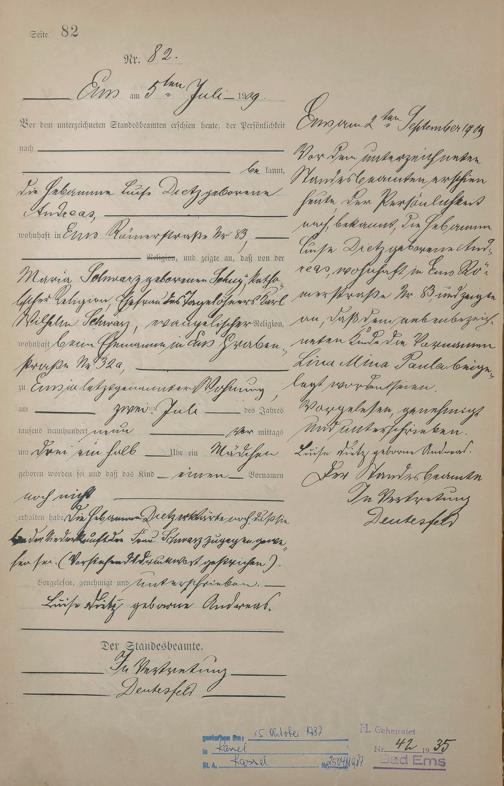 Seite 82
Nr. 82.
Ems am 5ten Juli 1909
Vor dem unterzeichneten Standesbeamten erschien heute, der Persönlichkeit
nach
be kannt,
die Hebamme Luise Dietz geborene
Andreas,
wohnhaft in Ems Römerstraße Nr 83,
Religion, und zeigte an, daß von der
Maria Schwarz geborenen katho-
lischer Religion, Ehefrau des Tagelöhners Karl
Wilhelm Schwarz, evangelischer Religion,
wohnhaft beim Ehemanne in Ems Graben-
straße Nr 32a,
zu Ems in letztgenannter Wohnung,
am zwei Juli des Jahres
tausend neunhundert neun vor mittags
um drei ein halb Uhr ein Mädchen
geboren worden sei und daß das Kind einen Vornamen
noch nicht
erhalten habe. Die Hebamme Dietz erklärte noch, daß sie
bei der Niederkunft der Frau Schwarz zugegen gewe-
sen sei. (Vorstehend Druckwort gestrichen).
Vorgelesen, genehmigt und unterschrieben.
Luise Dietz geborne Andreas.
Der Standesbeamte.
In Vertretung
Deutesfeld
Ems am 2ten September 1909
Vor dem unterzeichneten
Standesbeamten erschien
heute, der Persönlichkeit
nach bekannt, die Hebamme
Luise Dietz geborene And-
reas, wohnhaft in Ems Rö-
merstraße Nr 83 und zeigte
an, daß dem nebenbezeich-
neten Kinde die Vornamen
Lina Mina Paula beige-
legt worden seien.
Vorgelesen, genehmigt
und unterschrieben.
Luise Dietz geborne Andreas.
Der Standesbeamte
In Vertretung
Deutesfeld
gestorben am: 15. Oktober 1987
in Kassel
St. A. Kassel Nr.
Geheiratet
Nr. 42 1935
Bad Ems